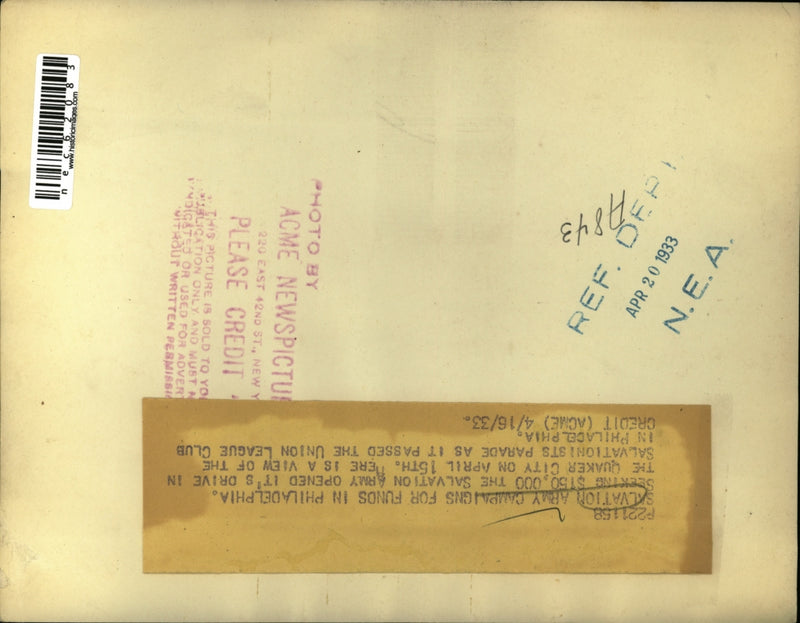 P221158
SALVATION ARMY CAMPAIGNS FOR FUNDS IN PHILADELPHIA.
SEEKING $150,000 THE SALVATION ARMY OPENED IT'S DRIVE IN
THE QUAKER CITY ON APRIL 15TH. HERE IS A VIEW OF THE
SALVATIONISTS PARADE AS IT PASSED THE UNION LEAGUE CLUB
IN PHILADELPHIA.
CREDIT (ACME) 4/16/33.
PHOTO BY
ACME NEWSPICTU
220 EAST 42ND ST., NEW Y
PLEASE CREDIT
THIS PICTURE IS SOLD TO YO
PUBLICATION ONLY AND MUST
SYNDICATED OR USED FOR ADVER
WITHOUT WRITTEN PERMISSI
A843
REF. DEPT
APR 20 1933
N.E.A.
nec62083
www.historicimages.com